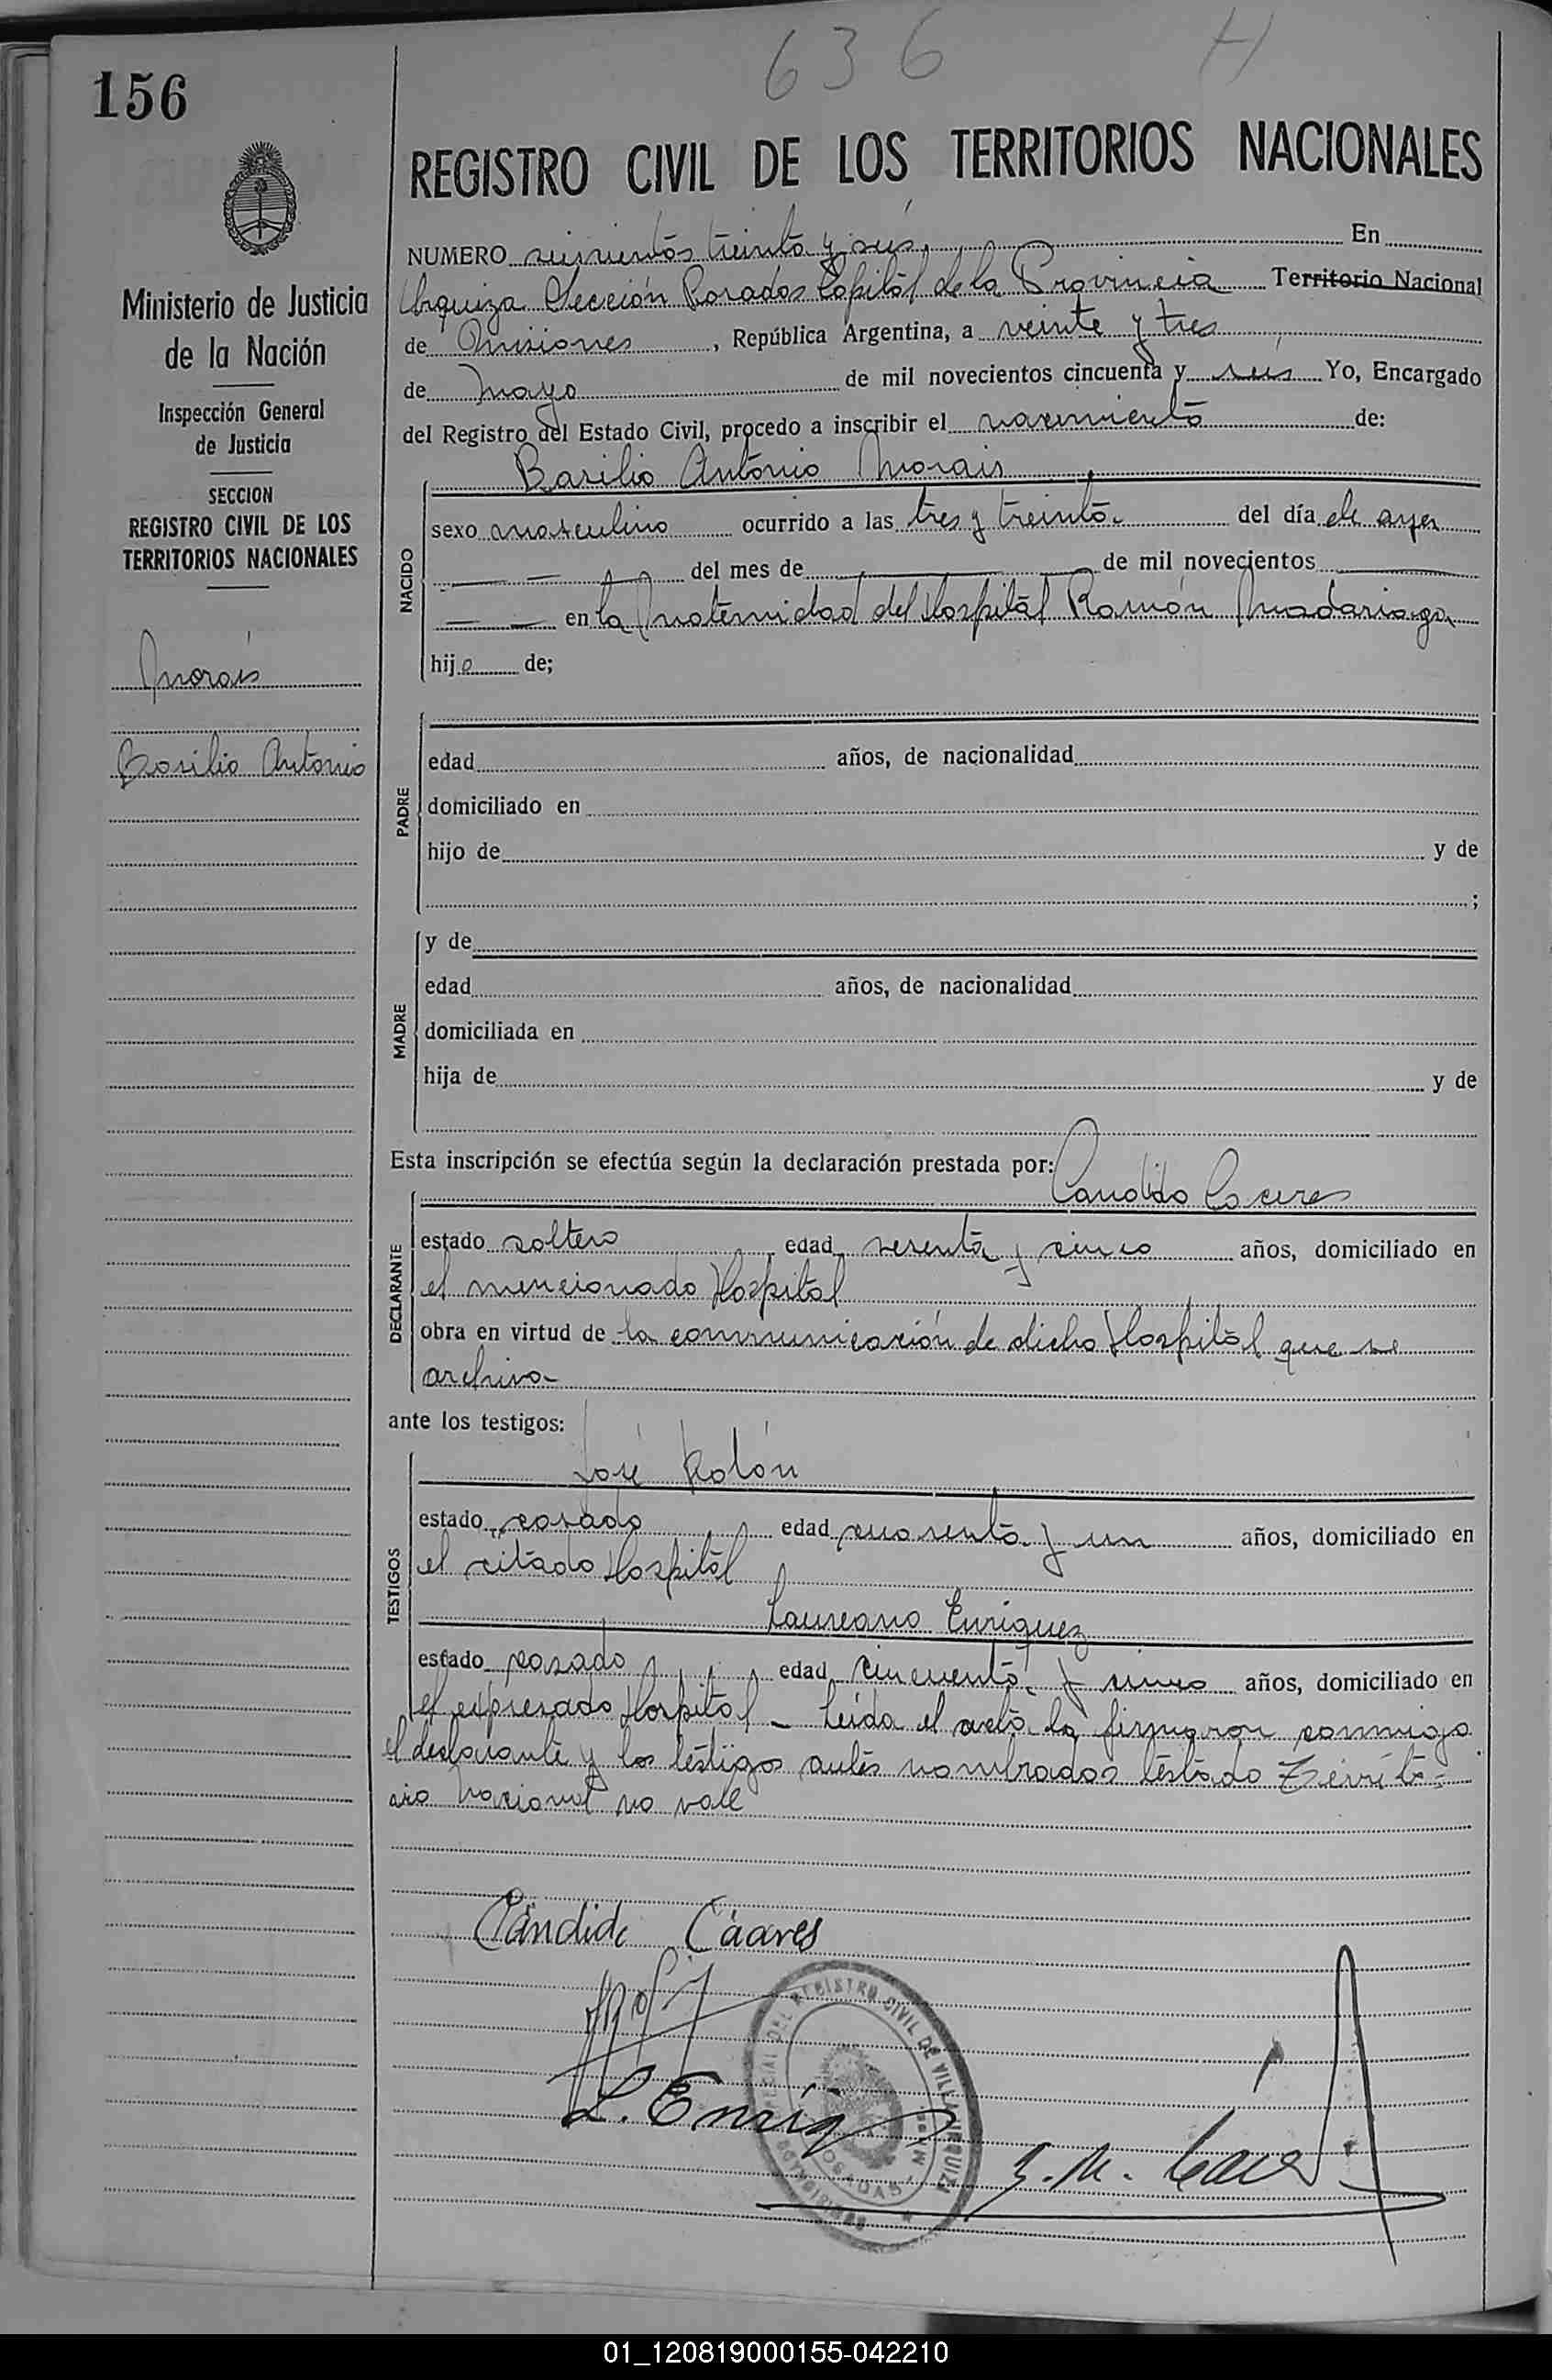 636 H
156
REGISTRO CIVIL DE LOS TERRITORIOS NACIONALES
NUMERO seiscientos treinta y seis, En
Urquiza Sección Posadas Capital de la Provincia Territorio Nacional
de Misiones, República Argentina, a veinte y tres
de mayo de mil novecientos cincuenta y seis Yo, Encargado
del Registro del Estado Civil, procedo a inscribir el nacimiento de:
Ministerio de Justicia
de la Nación
Inspección General
de Justicia
SECCION
REGISTRO CIVIL DE LOS
TERRITORIOS NACIONALES
Morais
Basilio Antonio
NACIDO
Basilio Antonio Morais
sexo masculino ocurrido a las tres y treinta. del día de ayer
del mes de de mil novecientos
en la Maternidad del Hospital Ramón Madariaga
hijo de;
PADRE
edad años, de nacionalidad
domiciliado en
hijo de y de
;
MADRE
y de
edad años, de nacionalidad
domiciliada en
hija de y de
Esta inscripción se efectúa según la declaración prestada por:
Candido Caceres
DECLARANTE
estado soltero edad sesenta y cinco años, domiciliado en
el mencionado Hospital
obra en virtud de la communicación de dicho Hospital que se
archiva-
ante los testigos:
TESTIGOS
José Rolón
estado casado edad cuarenta y un años, domiciliado en
el citado Hospital
Laureano Enriquez
estado casado edad cincuenta y cinco años, domiciliado en
el expresado Hospital - Leida el acta la firmaron conmigo
el declarante y los testigos antes nombrados testado Territo=
rio Nacional no vale
Cándido Cáares
L. Enriq
REGISTRO CIVIL DE VILLA URQUIZA
POSADAS
01_120819000155-042210